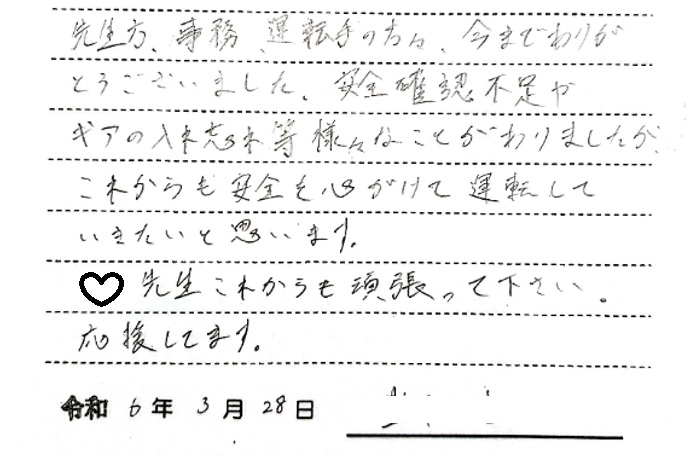 先生方、事務、運転手の方々、今までありが
とうございました。安全確認不足や
ギアの入れ忘れ等様々なことがありましたが、
これからも安全を心がけて運転して
いきたいと思います。
♡先生これからも頑張って下さい。
応援してます。
令和6年3月28日